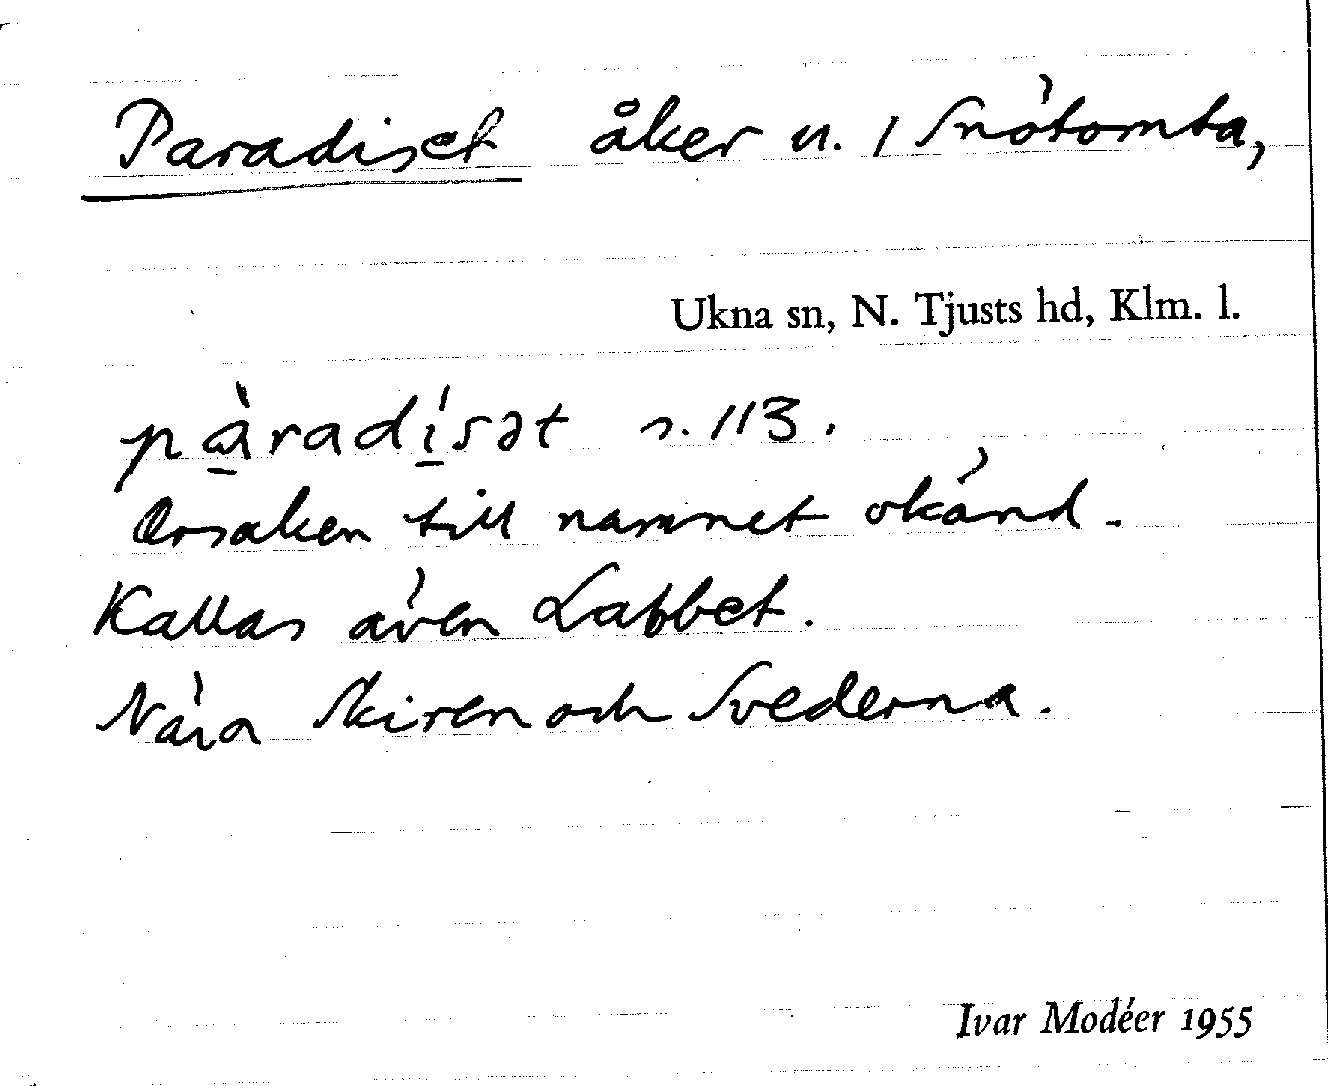 Paradiset åker u. / Snötomta,
Ukna sn, N. Tjusts hd, Klm. l.
pàradísət s. 113.
Orsaken till namnet okänd.
Kallas även Labbet.
Nära Skiren och Svederna.
Ivar Modéer 1955